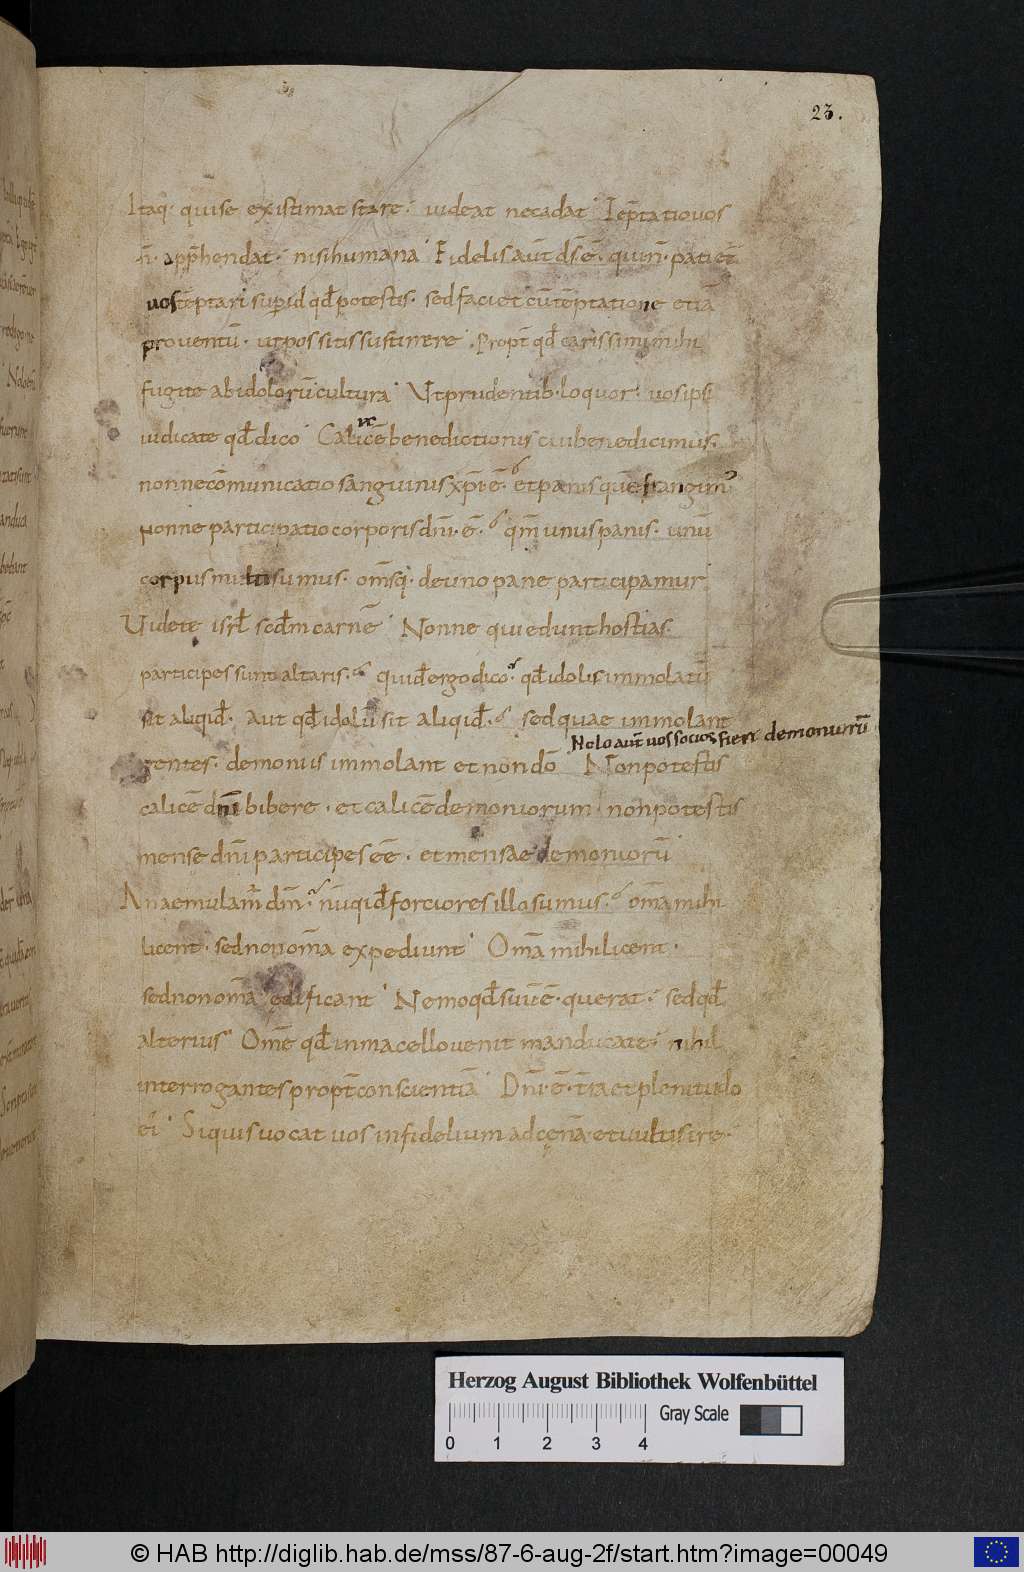 23.
Itaq· qui se existimat stare· uideat ne cadat· Teptatio uos
n̄· app̄hendat· nisi humana· Fidelis aut̄ d̄s ē· qui n̄· patiet̄
uos tēptari sup id qd̄ potestis· sed faciet cū tēptatione etiā
prouentū· ut possitis sustinere· Propt̄ qd̄ carissimi mihi
fugite ab idolorū cultura· Ut prudentib· loquor· uos ipsi
iudicate qd̄ dico· Calicē benedictionis cui benedicimus·
nonne cōmunicatio sanguinis xp̄i ē· et panis quē frangim᾿
Nonne participatio corporis dn̄i· ē· qm̄ unus panis· unū
corpus multi sumus· om̄sq· de uno pane participamur·
Uidete isrl̄ scd̄m carnē· Nonne qui edunt hostias·
participes sunt altaris· quid ergo dico· qd̄ idolis immolatū
sit aliqid· Aut qd̄ idolū sit aliqid· sed quae immolant
Nolo aut̄ uos socios fieri demoniorū
gentes· demoniis immolant et non dō· Non potestis
calicē dn̄i bibere· et calicē demoniorum· non potestis
mense dn̄i participes eē· et mensae demoniorū·
An aemulam̄ dn̄m· nūqid forciores illo sumus· om̄a mihi
licent· sed non om̄a expediunt· Om̄a mihi licent·
sed non om̄a edificant· Nemo qd̄ suū ē· querat· sed qd̄
alterius· Om̄e qd̄ in macello uenit manducate· nihil
interrogantes propt̄ conscientiā· Dn̄i· ē· t̄ra et plenitudo
ei᾿· Si quis uocat uos infidelium ad cęnā· et uultis ire·
Herzog August Bibliothek Wolfenbüttel
Gray Scale
0 1 2 3 4
© HAB http://diglib.hab.de/mss/87-6-aug-2f/start.htm?image=00049